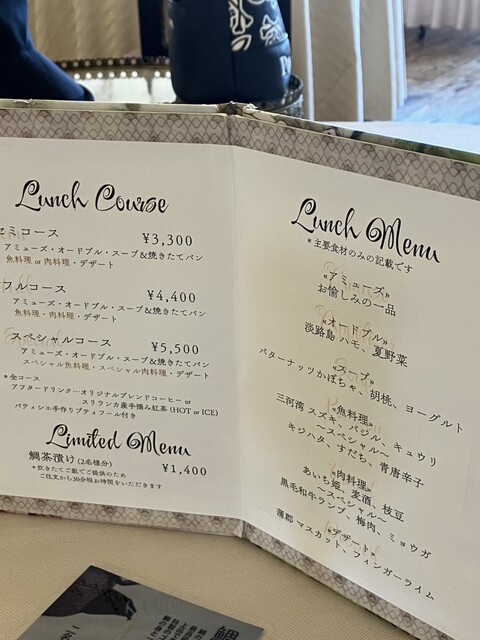 Lunch Course
セミコース ¥3,300
アミューズ・オードブル・スープ&焼きたてパン
魚料理 or 肉料理・デザート
フルコース ¥4,400
アミューズ・オードブル・スープ&焼きたてパン
魚料理・肉料理・デザート
スペシャルコース ¥5,500
アミューズ・オードブル・スープ&焼きたてパン
スペシャル魚料理・スペシャル肉料理・デザート
*全コース
アフタードリンク…オリジナルブレンドコーヒー or
スリランカ産手摘み紅茶 (HOT or ICE)
パティシエ手作りプティフール付き
Limited Menu
鯛茶漬け (2名様分) ¥1,400
*炊きたてご飯でご提供のため
ご注文から30分程お時間をいただきます
Lunch Menu
*主要食材のみの記載です
«アミューズ»
お愉しみの一品
«オードブル»
淡路島 ハモ、夏野菜
«スープ»
バターナッツかぼちゃ、胡桃、ヨーグルト
«魚料理»
三河湾 スズキ、バジル、キュウリ
～スペシャル～
キジハタ、すだち、青唐辛子
«肉料理»
あいち姫、麦酒、枝豆
～スペシャル～
黒毛和牛ランプ、梅肉、ミョウガ
«デザート»
蒲郡 マスカット、フィンガーライム